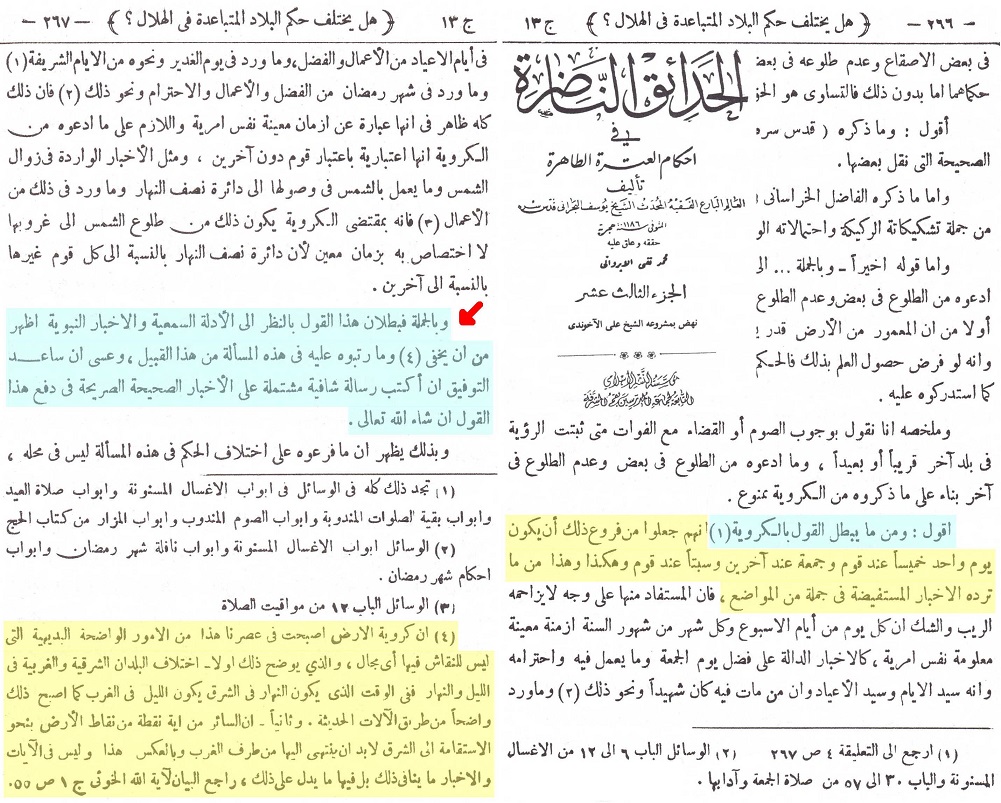 — ٢٦٦ — ﴿ هل يختلف حكم البلاد المتباعدة فى الهلال ؟ ﴾ ج ١٣
فى بعض الاصقاع وعدم طلوعه فى بعض
حكماهما اما بدون ذلك فالتساوى هو الحق
أقول : وما ذكره ( قدس سره
الصحيحة التى نقل بعضها .
واما ما ذكره الفاضل الخراسانى
من جملة تشكيكاته الركيكة واحتمالاته
واما قوله اخيراً ـ وبالجملة ...
ادعوه من الطلوع فى بعض وعدم الطلوع
أولا من ان المعمور من الأرض قدر
وانه لو فرض حصول العلم بذلك فالحكم
كما استدركوه عليه .
الحدائق الناضرة
في
احكام العترة الطاهرة
تأليف
العالم البارع الفقيه المحدث الشيخ يوسف البحرانى قدس سره
المتوفى ١١٨٦ هجرية
حققه وعلق عليه
محمد تقى الايروانى
الجزء الثالث عشر
نهض بمشروعه الشيخ على الآخوندى
مؤسسة النشر الإسلامي
التابعة لجماعة المدرسين بقم المشرفة
وملخصه انا نقول بوجوب الصوم أو القضاء مع الفوات متى ثبتت الرؤية
فى بلد آخر قريباً أو بعيداً ، وما ادعوه من الطلوع فى بعض وعدم الطلوع فى
آخر بناء على ما ذكروه من الكروية ممنوع .
أقول : ومن ما يبطل القول بالكروية (١) انهم جعلوا من فروع ذلك أن يكون
يوم واحد خميساً عند قوم وجمعة عند آخرين وسبتاً عند قوم وهكذا وهذا من ما
ترده الاخبار المستفيضة فى جملة من المواضع ، فان المستفاد منها على وجه لا يزاحمه
الريب والشك ان كل يوم من أيام الاسبوع وكل شهر من شهور السنة ازمنة معينة
معلومة نفس امرية ، كالاخبار الدالة على فضل يوم الجمعة وما يعمل فيه واحترامه
وانه سيد الايام وسيد الأعياد وان من مات فيه كان شهيداً ونحو ذلك (٢) وما ورد
(١) ارجع الى التعليقة ٤ ص ٢٦٧ (٢) الوسائل الباب ٦ الى ١٢ من الاغسال
المسنونة والباب ٣٠ الى ٥٧ من صلاة الجمعة وآدابها .
ج ١٣ ﴿ هل يختلف حكم البلاد المتباعدة فى الهلال ؟ ﴾ — ٢٦٧ —
فى أيام الاعياد من الأعمال والفضل ، وما ورد فى يوم الغدير ونحوه من الايام الشريفة (١)
وما ورد فى شهر رمضان من الفضل والأعمال والاحترام ونحو ذلك (٢) فان ذلك
كله ظاهر فى انها عبارة عن ازمان معينة نفس امرية واللازم على ما ادعوه من
الكروية انها اعتبارية باعتبار قوم دون آخرين ، ومثل الأخبار الواردة فى زوال
الشمس وما يعمل بالشمس فى وصولها الى دائرة نصف النهار وما ورد فى ذلك من
الأعمال (٣) فانه بمقتضى الكروية يكون ذلك من طلوع الشمس الى غروبها
لا اختصاص به بزمان معين لأن دائرة نصف النهار بالنسبة الى كل قوم غيرها
بالنسبة الى آخرين .
وبالجملة فبطلان هذا القول بالنظر الى الأدلة السمعية والاخبار النبوية اظهر
من ان يخفى (٤) وما رتبوه عليه فى هذه المسألة من هذا القبيل ، وعسى ان ساعد
التوفيق ان أكتب رسالة شافية مشتملة على الأخبار الصحيحة الصريحة فى دفع هذا
القول ان شاء الله تعالى .
وبذلك يظهر ان ما فرعوه على اختلاف الحكم فى هذه المسألة ليس فى محله ،
(١) تجد ذلك كله فى الوسائل فى ابواب الاغسال المسنونة وابواب صلاة العيد
وابواب بقية الصلوات المندوبة وابواب الصوم المندوب وابواب المزار من كتاب الحج
(٢) الوسائل ابواب الاغسال المسنونة وابواب نافلة شهر رمضان وابواب
احكام شهر رمضان .
(٣) الوسائل الباب ١٢ من مواقيت الصلاة
(٤) ان كروية الارض اصبحت فى عصرنا هذا من الامور الواضحة البديهية التى
ليس للنقاش فيها أى مجال ، والذى يوضح ذلك اولا ـ اختلاف البلدان الشرقية والغربية فى
الليل والنهار ففى الوقت الذى يكون النهار فى الشرق يكون الليل فى الغرب كما اصبح ذلك
واضحاً من طريق الآلات الحديثة . وثانياً ـ ان السائر من اية نقطة من نقاط الأرض بنحو
الاستقامة الى الشرق لابد ان ينتهى اليها من طرف الغرب وبالعكس هذا وليس فى الآيات
والاخبار ما ينافى ذلك بل فيها ما يدل على ذلك ، راجع البيان لآية الله الخوئى ج ١ ص ٥٥.